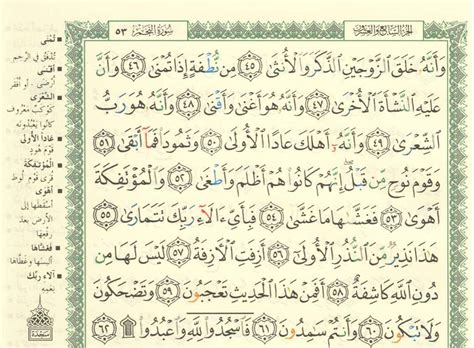 الجزء السابع والعشرون
سُورَةُ النَّجْمِ ٥٣
وَأَنَّهُۥ خَلَقَ ٱلزَّوْجَيْنِ ٱلذَّكَرَ وَٱلْأُنثَىٰ ٤٥ مِن نُّطْفَةٍ إِذَا تُمْنَىٰ ٤٦ وَأَنَّ
عَلَيْهِ ٱلنَّشْأَةَ ٱلْأُخْرَىٰ ٤٧ وَأَنَّهُۥ هُوَ أَغْنَىٰ وَأَقْنَىٰ ٤٨ وَأَنَّهُۥ هُوَ رَبُّ
ٱلشِّعْرَىٰ ٤٩ وَأَنَّهُۥٓ أَهْلَكَ عَادًا ٱلْأُولَىٰ ٥٠ وَثَمُودَا۟ فَمَآ أَبْقَىٰ ٥١
وَقَوْمَ نُوحٍ مِّن قَبْلُ ۖ إِنَّهُمْ كَانُوا۟ هُمْ أَظْلَمَ وَأَطْغَىٰ ٥٢ وَٱلْمُؤْتَفِكَةَ
أَهْوَىٰ ٥٣ فَغَشَّىٰهَا مَا غَشَّىٰ ٥٤ فَبِأَىِّ ءَالَآءِ رَبِّكَ تَتَمَارَىٰ ٥٥
هَٰذَا نَذِيرٌ مِّنَ ٱلنُّذُرِ ٱلْأُولَىٰٓ ٥٦ أَزِفَتِ ٱلْءَازِفَةُ ٥٧ لَيْسَ لَهَا مِن
دُونِ ٱللَّهِ كَاشِفَةٌ ٥٨ أَفَمِنْ هَٰذَا ٱلْحَدِيثِ تَعْجَبُونَ ٥٩ وَتَضْحَكُونَ
وَلَا تَبْكُونَ ٦٠ وَأَنتُمْ سَٰمِدُونَ ٦١ فَٱسْجُدُوا۟ لِلَّهِ وَٱعْبُدُوا۟ ۩ ٦٢
تُمْنَى
تُدْفَقُ في الرَّحِمِ
أَقْنَى
أَرْضَى. أو أَفْقَرَ
الشِّعْرَى
كوكبٌ معروفٌ
كانوا يَعْبُدُونَهُ
عَادًا الأُولَى
قومَ هُودٍ
المُؤْتَفِكَةَ
قُرَى قوم لُوطٍ
أَهْوَى
أسقطها إلى
الأرض بعد
رفعها
فَغَشَّاهَا
ألبسها وغطَّاها
آلاءِ رَبِّكَ
نِعَمِهِ
سجدة